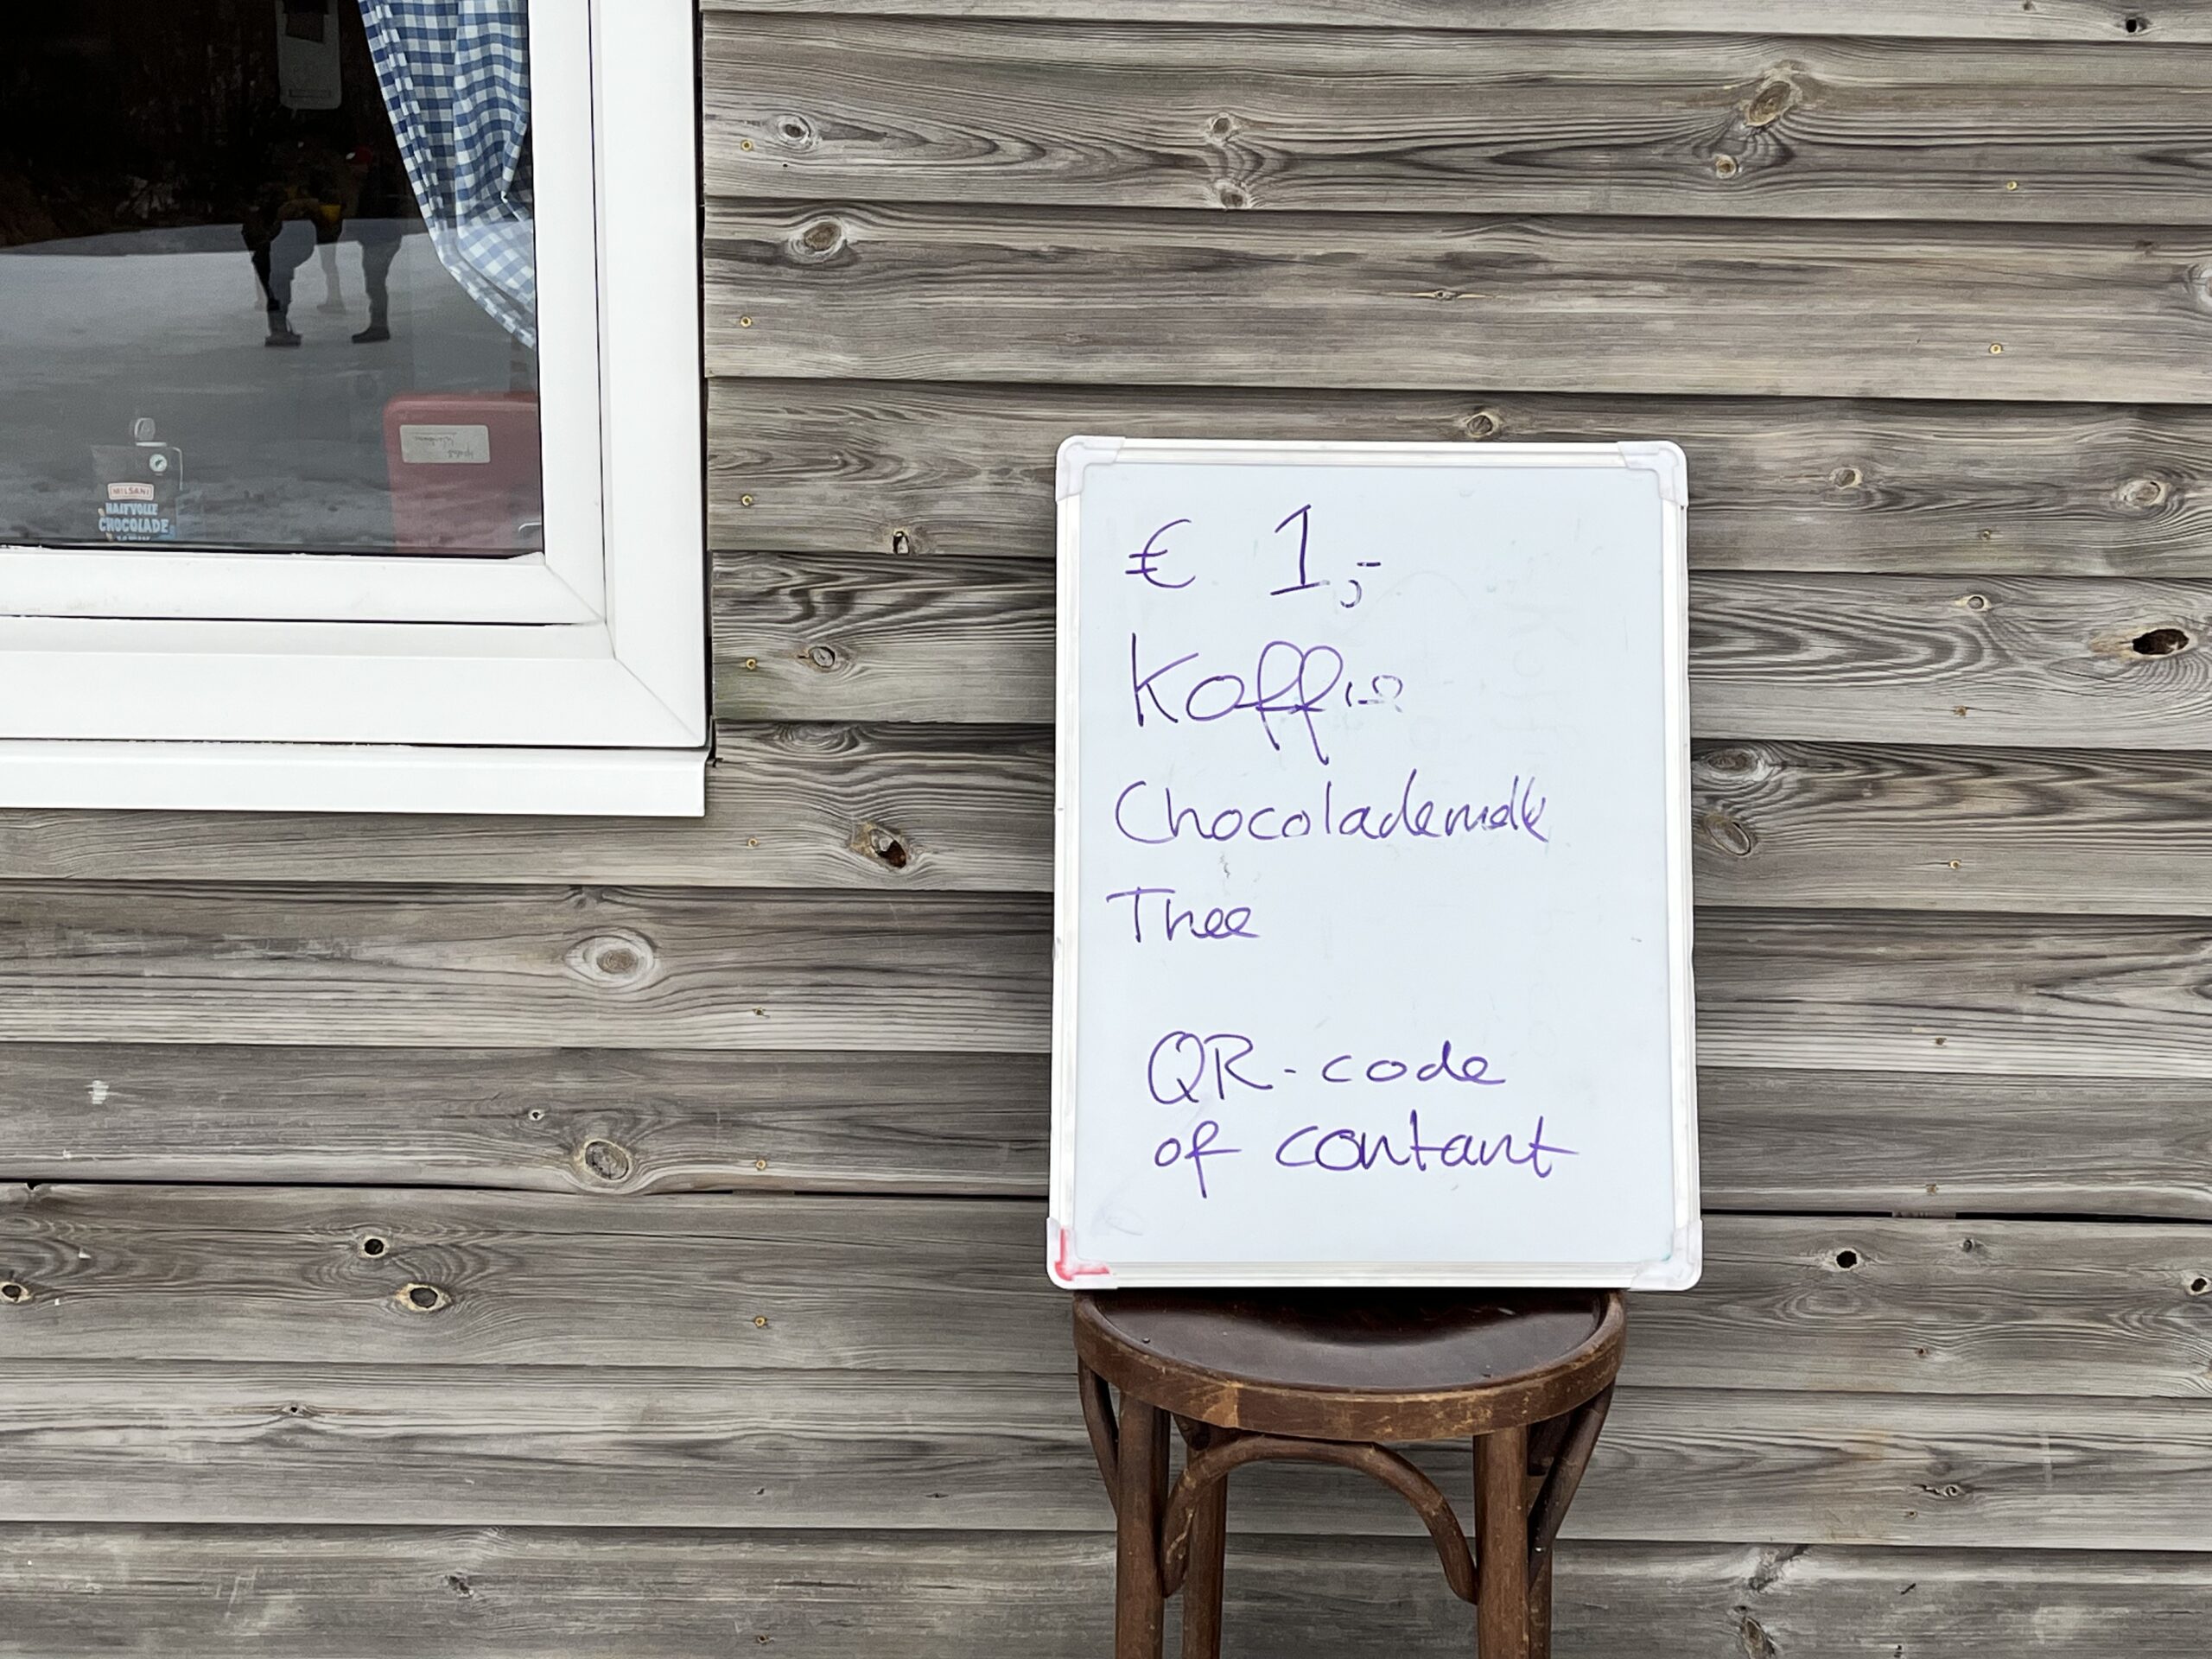 MILSANI
HALFVOLLE
CHOCOLADE
€ 1,-
Koffie
Chocolademelk
Thee
QR-code
of contant